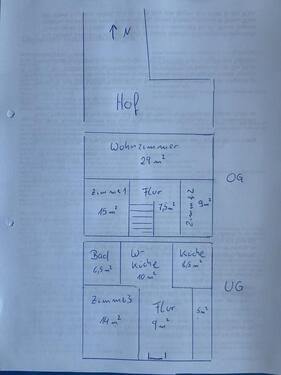 ↑ N
Hof
Wohnzimmer
29 m²
OG
Zimmer 1
Flur
Zimmer 2
9 m²
15 m²
7,5 m²
Bad
6,5 m²
W-
Küche
10 m²
Küche
8,5 m²
UG
Zimmer 3
14 m²
Flur
9 m²
5 m²